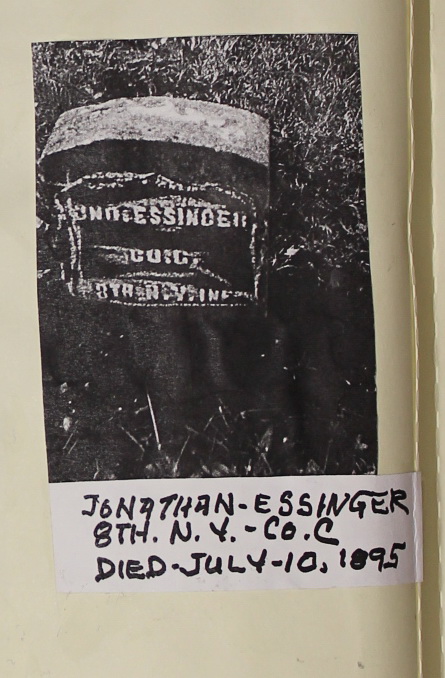 JNO. ESSINGER
CO. C.
8TH. N.Y. INF.
JONATHAN-ESSINGER
8TH. N.Y.-CO.C
DIED-JULY-10, 1895